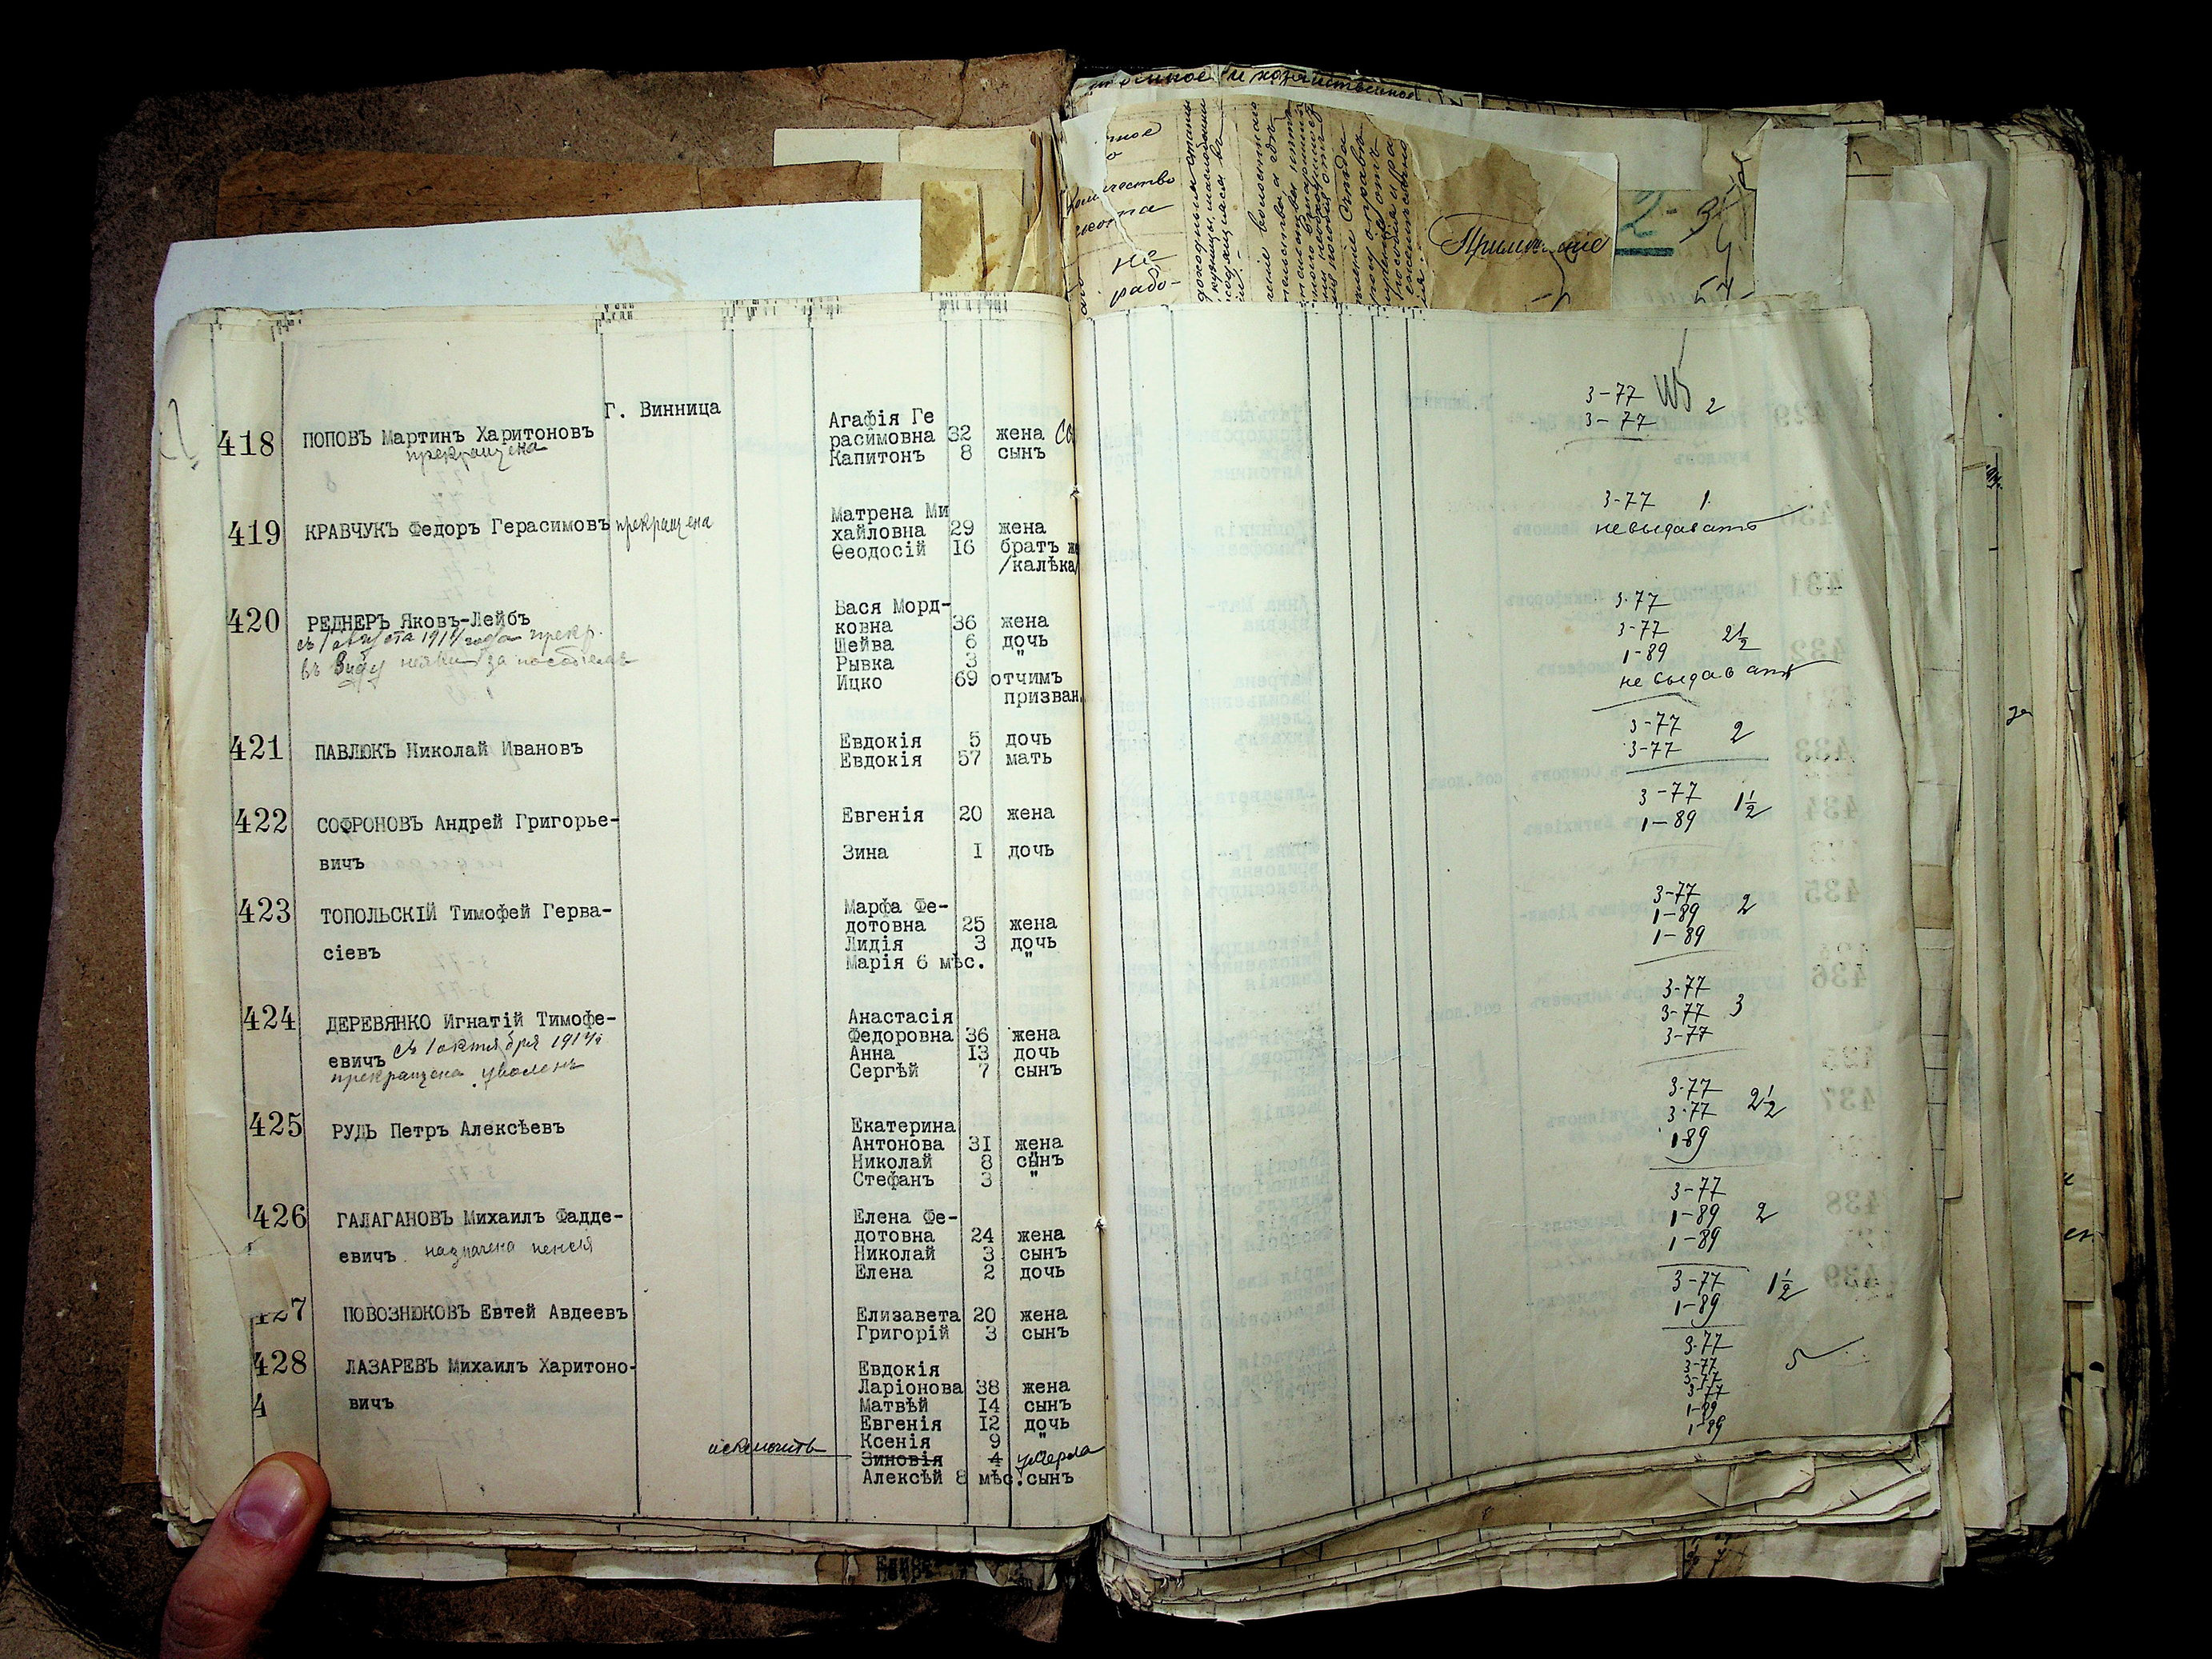 Примѣчаніе
Г. Винница
418 ПОПОВЪ Мартинъ Харитоновъ
прекращена
Агафія Ге
расимовна 32 жена
Капитонъ 8 сынъ
3-77
3-77 2
419 КРАВЧУКЪ Федоръ Герасимовъ прекращена
Матрена Ми
хайловна 29 жена
Ѳеодосій 16 братъ
/калѣка/
3-77 1.
не выдавать
420 РЕДНЕРЪ Яковъ-Лейбъ
съ 1 августа 1914 года прекр.
въ виду неявки за пособіемъ
Бася Морд-
ковна 36 жена
Шейва 6 дочь
Рывка 3 "
Ицко 69 отчимъ
призван.
3-77
3-77
1-89 2½
не выдавать
421 ПАВЛЮКЪ Николай Ивановъ
Евдокія 5 дочь
Евдокія 57 мать
3-77
3-77 2
422 СОФРОНОВЪ Андрей Григорье-
вичъ
Евгенія 20 жена
Зина I дочь
3-77
1-89 1½
423 ТОПОЛЬСКІЙ Тимофей Герва-
сіевъ
Марфа Фе-
дотовна 25 жена
Лидія 3 дочь
Марія 6 мѣс. "
3-77
1-89 2
1-89
424 ДЕРЕВЯНКО Игнатій Тимофе-
евичъ съ 1 октября 1914
прекращена уволенъ
Анастасія
Федоровна 36 жена
Анна 13 дочь
Сергѣй 7 сынъ
3-77
3-77 3
3-77
425 РУДЬ Петръ Алексѣевъ
Екатерина
Антонова 31 жена
Николай 8 сынъ
Стефанъ 3 "
3-77
3-77 2½
1-89
426 ГАЛАГАНОВЪ Михаилъ Фадде-
евичъ назначена пенсія
Елена Фе-
дотовна 24 жена
Николай 3 сынъ
Елена 2 дочь
3-77
1-89 2
1-89
427 ПОВОЗНЮКОВЪ Евтей Авдеевъ
Елизавета 20 жена
Григорій 3 сынъ
3-77 1½
1-89
428 ЛАЗАРЕВЪ Михаилъ Харитоно-
4 вичъ
Евдокія
Ларіонова 38 жена
Матвѣй 14 сынъ
Евгенія 12 дочь
Ксенія 9 "
исключить Зиновія 4 умерла
Алексѣй 8 мѣс. сынъ
3-77
3-77 5
3-77
3-77
1-89
1-89